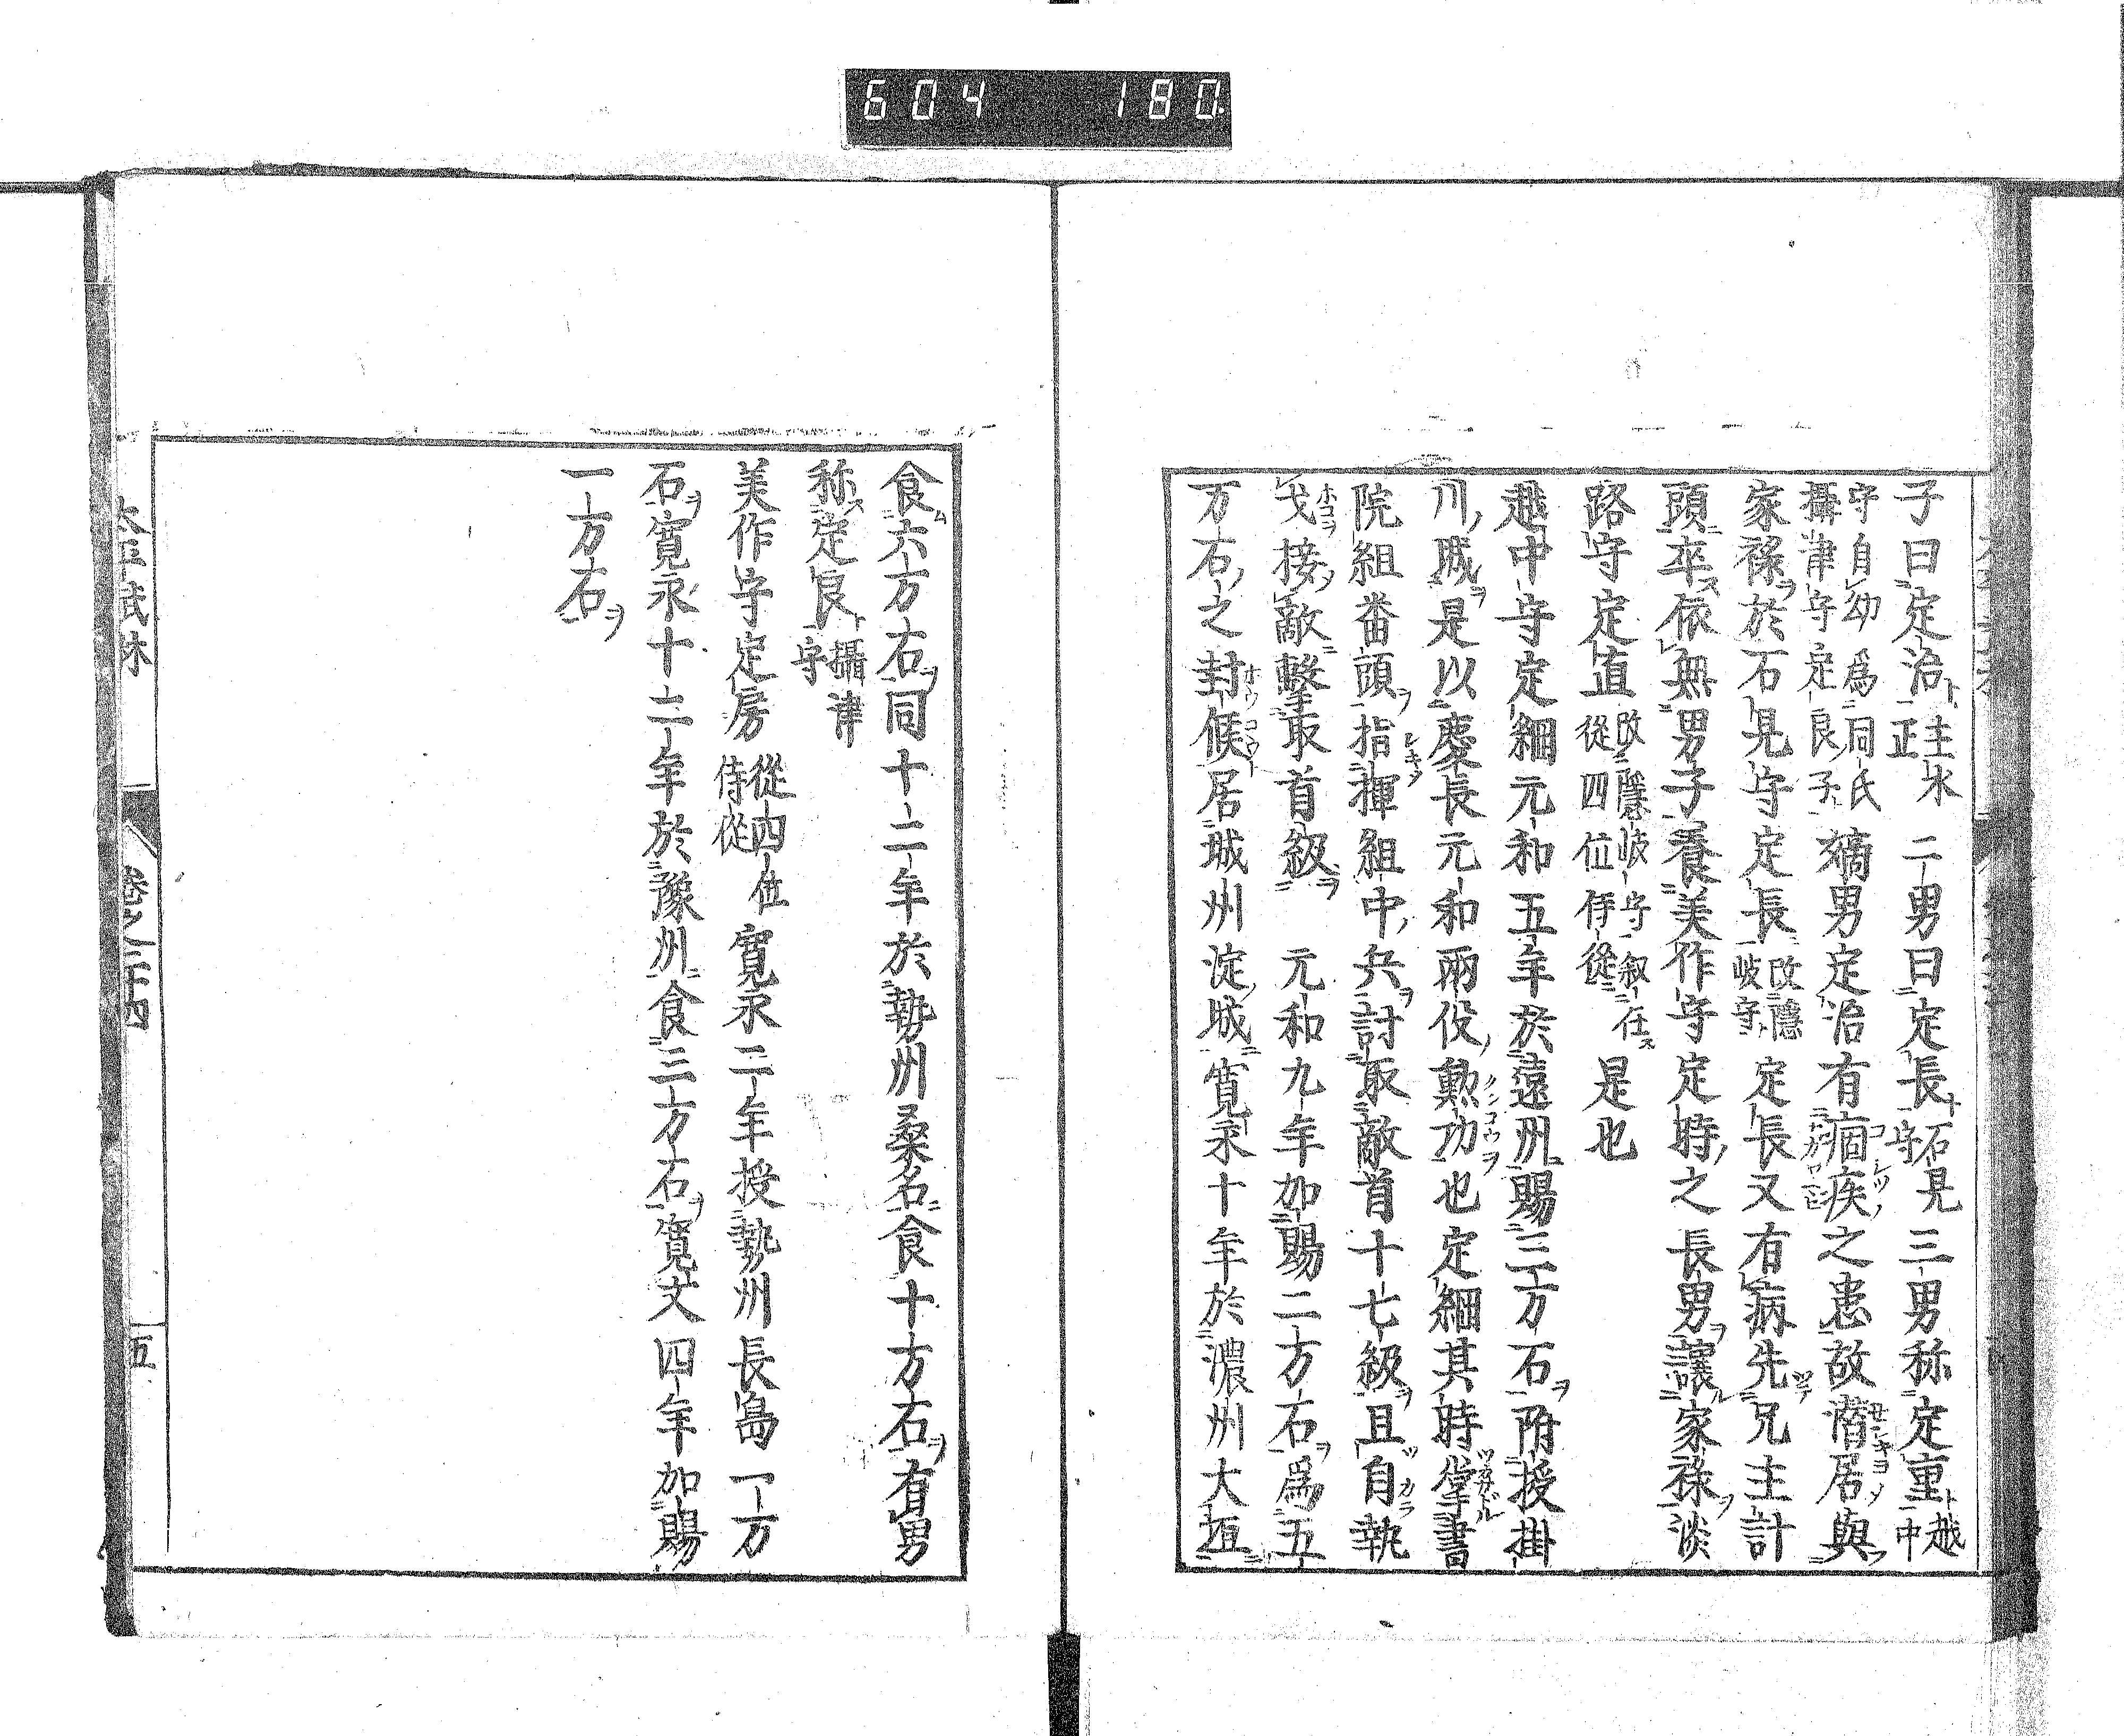 604 180
子曰定治主水正二男曰定長石見守三男称定重越中
守自幼為同氏攝津守定良子嫡男定治有痼疾之患故潛居與
家禄於石見守定長改隠岐守定長又有病先兄主計
頭卒依無男子養美作守定時之長男譲家禄淡
路守定直改隱岐守叙任従四位侍從是也
越中守定綱元和五年於遠州賜三万石附授掛
川城是以慶長元和兩役勲功也定綱其時掌書
院組番頭指揮組中兵討取敵首十七級且自執
戈接敵擊取首級元和九年加賜二万石為五
万石之封候居城州淀城寛永十年於濃州大垣
食六万石同十二年於勢州桑名食十万石有男
称定良攝津守
美作守定房從四位侍從寛永二年授勢州長島一万
石寛永十二年於豫州食三万石寛文四年加賜
一万石
卷之二十四
五